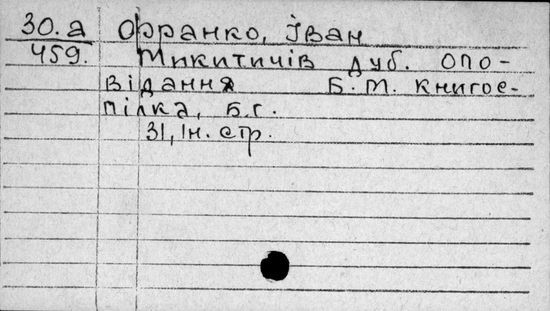 30.а Франко, Іван
459. Микитичів дуб. Опо-
відання Б.М. Книгос-
пілка, Б.г.
31, ІН. стр.